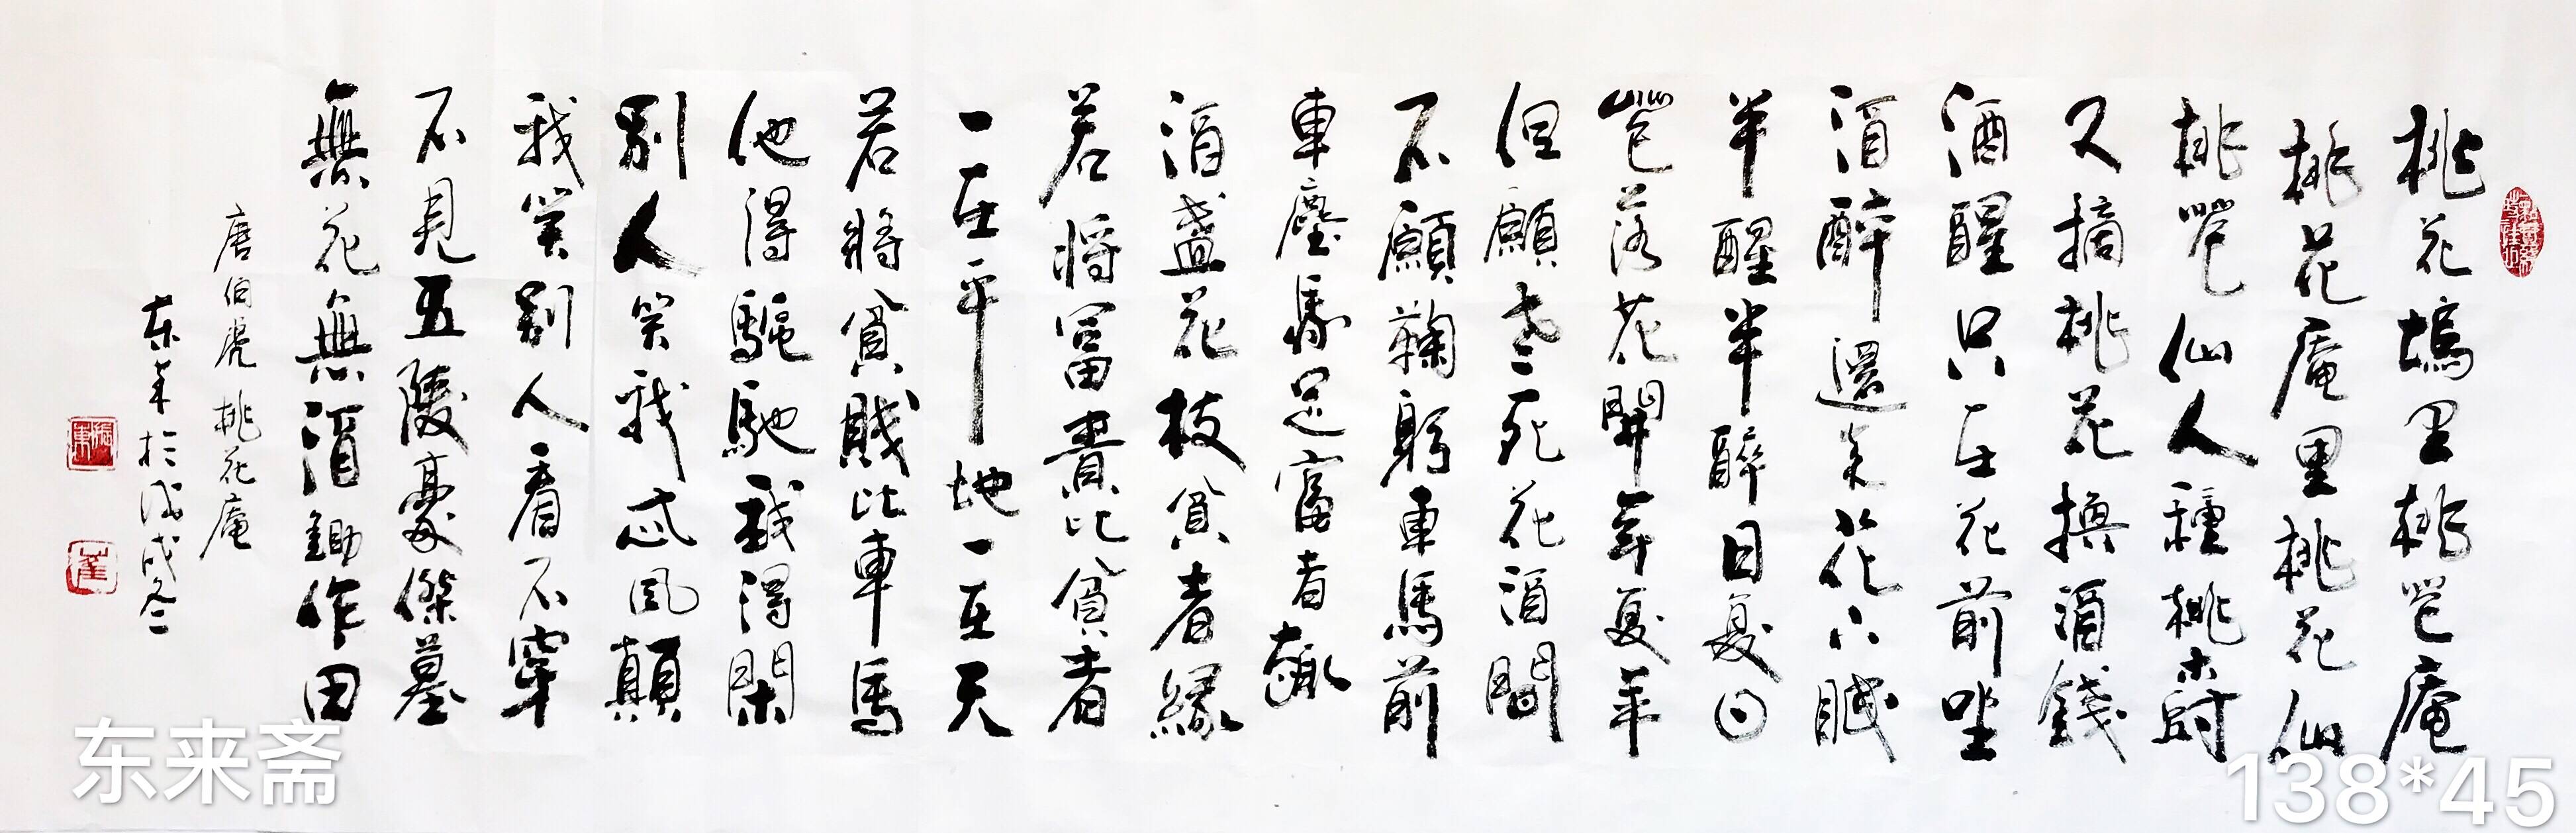 桃花塢里桃花庵
桃花庵里桃花仙
桃花仙人種桃樹
又摘桃花換酒錢
酒醒只在花前坐
酒醉還来花下眠
半醒半醉日复日
花落花開年复年
但願老死花酒間
不願鞠躬車馬前
車塵馬足富者趣
酒盞花枝貧者緣
若將富貴比貧者
一在平地一在天
若將貧賤比車馬
他得驅馳我得閑
別人笑我忒風顛
我笑別人看不穿
不見五陵豪傑墓
無花無酒鋤作田
唐伯虎桃花庵
东来於戊戌冬
东来斋
138*45